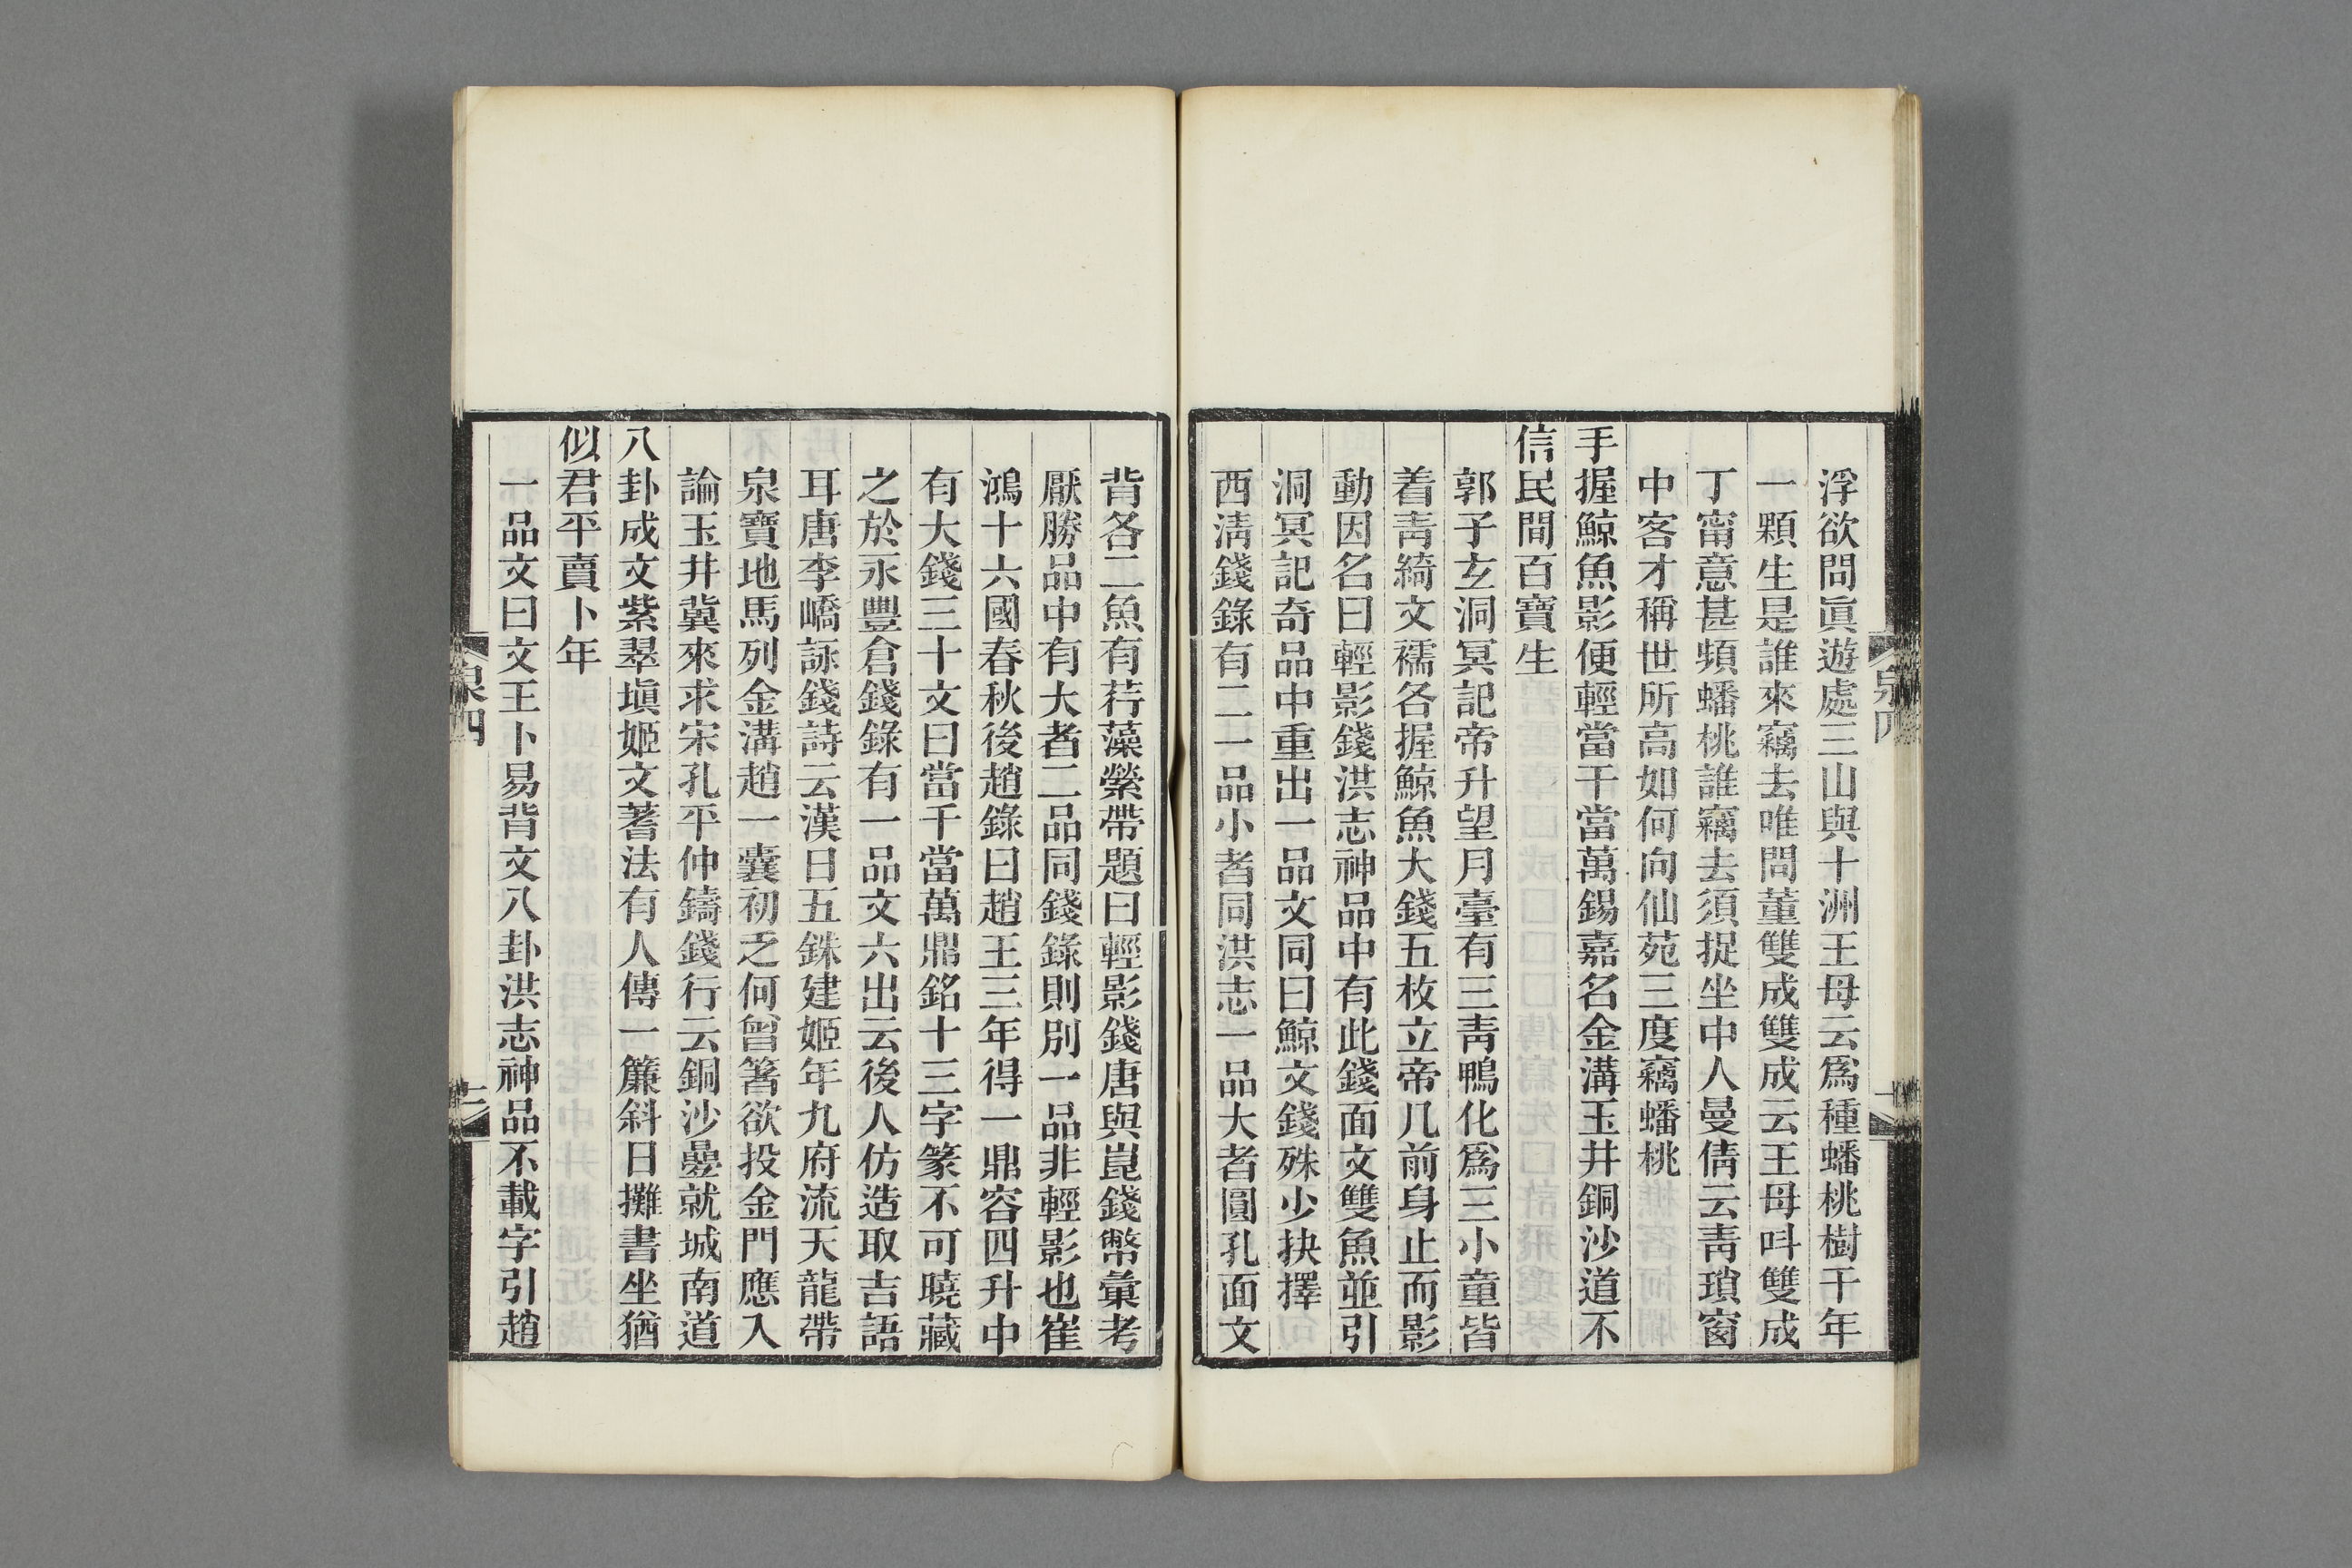 浮欲問眞遊處三山與十洲王母云爲種蟠桃樹干年
一顆生是誰來竊去唯問董雙成雙成云王母呌雙成
丁甯意甚頻蟠桃誰竊去須捉坐中人曼倩云靑瑣窗
中客才稱世所高如何向仙苑三度竊蟠桃
手握鯨魚影便輕當千當萬錫嘉名金溝玉井銅沙道不
信民間百寶生
郭子玄洞冥記帝升望月臺有三靑鴨化爲三小童皆
着靑綺文襦各握鯨魚大錢五枚立帝几前身止而影
動因名曰輕影錢洪志神品中有此錢面文雙魚並引
洞冥記奇品中重出一品文同曰鯨文錢殊少抉擇
西淸錢錄有二一品小者同洪志一品大者圓孔面文
背各二魚有荇藻縈帶題曰輕影錢唐與崑錢幣彙考
厭勝品中有大者二品同錢錄則別一品非輕影也崔
鴻十六國春秋後趙錄曰趙王三年得一鼎容四升中
有大錢三十文曰當千當萬鼎銘十三字篆不可曉藏
之於永豐倉錢錄有一品文六出云後人仿造取吉語
耳唐李嶠詠錢詩云漢日五銖建姬年九府流天龍帶
泉寶地馬列金溝趙一囊初乏何曾箸欲投金門應入
論玉井冀來求宋孔平仲鑄錢行云銅沙壘就城南道
八卦成文紫翠塡姬文蓍法有人傳一簾斜日攤書坐猶
似君平賣卜年
一品文曰文王卜易背文八卦洪志神品不載字引趙
泉四
泉四